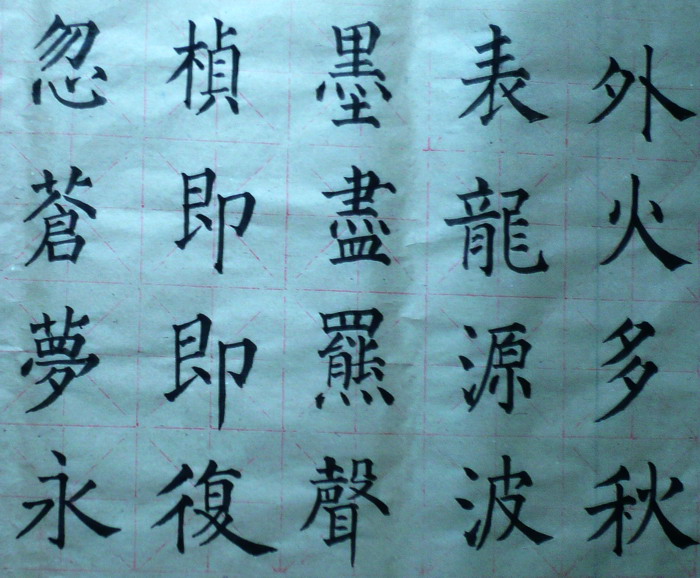 外火多秋
表龍源波
墨盡羆聲
楨即即復
忽蒼夢永